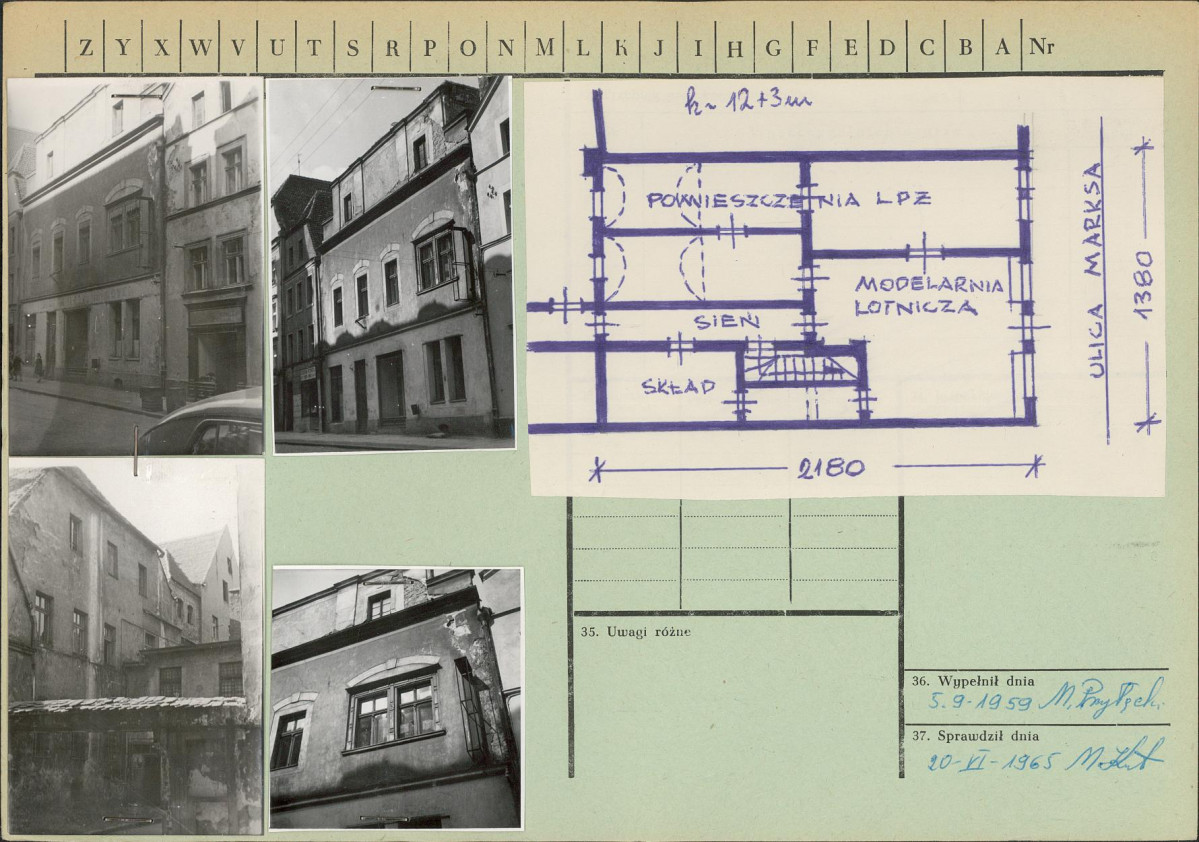 Z Y X W V U T S R P O N M L K J I H G F E D C B A Nr
h~ 12+3m
POMIESZCZENIA LPZ
MODELARNIA
LOTNICZA
SIEŃ
SKŁAD
ULICA MARKSA
1380
2180
35. Uwagi różne
36. Wypełnił dnia
5.9-1959 M. Przyłęcki
37. Sprawdził dnia
20-XI-1965